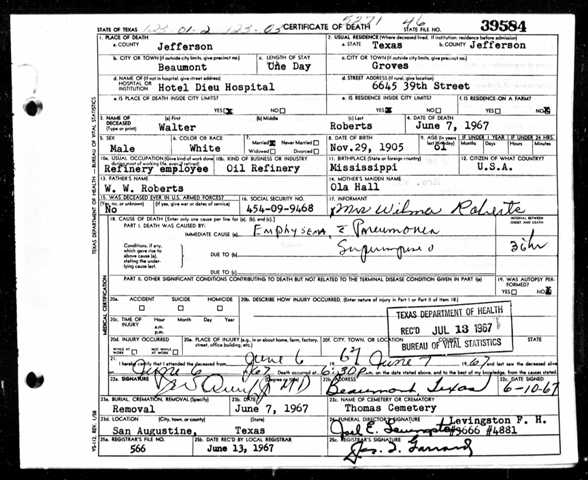 STATE OF TEXAS
CERTIFICATE OF DEATH
STATE FILE NO.
39584
1. PLACE OF DEATH
a. COUNTY
Jefferson
2. USUAL RESIDENCE (Where deceased lived. If institution: residence before admission)
a. STATE Texas b. COUNTY Jefferson
b. CITY OR TOWN (If outside city limits, give precinct no.)
Beaumont
c. LENGTH OF STAY
One Day
c. CITY OR TOWN (If outside city limits, give precinct no.)
Groves
d. NAME OF (If not in hospital, give street address)
HOSPITAL OR INSTITUTION
Hotel Dieu Hospital
d. STREET ADDRESS (If rural, give location)
6645 39th Street
e. IS PLACE OF DEATH INSIDE CITY LIMITS?
YES NO
e. IS RESIDENCE INSIDE CITY LIMITS?
YES NO
f. IS RESIDENCE ON A FARM?
YES NO
3. NAME OF DECEASED (Type or print)
(a) First
Walter
(b) Middle
(c) Last
Roberts
4. DATE OF DEATH
June 7, 1967
5. SEX
Male
6. COLOR OR RACE
White
7. Married Never Married
Widowed Divorced
8. DATE OF BIRTH
Nov.29, 1905
9. AGE (In years last birthday)
61
IF UNDER 1 YEAR
Months Days
IF UNDER 24 HRS.
Hours Min.
10a. USUAL OCCUPATION (Give kind of work done during most of working life, even if retired)
Refinery employee
10b. KIND OF BUSINESS OR INDUSTRY
Oil Refinery
11. BIRTHPLACE (State or foreign country)
Mississippi
12. CITIZEN OF WHAT COUNTRY?
U.S.A.
13. FATHER'S NAME
W. W. Roberts
14. MOTHER'S MAIDEN NAME
Ola Hall
15. WAS DECEASED EVER IN U.S. ARMED FORCES?
(Yes, no, or unknown) (If yes, give war or dates of service)
No
16. SOCIAL SECURITY NO.
454-09-9468
17. INFORMANT
Mrs Wilma Roberts
18. CAUSE OF DEATH [Enter only one cause per line for (a), (b), and (c).]
PART I. DEATH WAS CAUSED BY:
IMMEDIATE CAUSE (a)
Emphysema c Pneumonia
INTERVAL BETWEEN ONSET AND DEATH
Conditions, if any, which gave rise to above cause (a), stating the underlying cause last.
DUE TO (b)
DUE TO (c)
PART II. OTHER SIGNIFICANT CONDITIONS CONTRIBUTING TO DEATH BUT NOT RELATED TO THE TERMINAL DISEASE CONDITION GIVEN IN PART I(a)
19. WAS AUTOPSY PERFORMED?
YES NO
20a. ACCIDENT SUICIDE HOMICIDE
20b. DESCRIBE HOW INJURY OCCURRED. (Enter nature of injury in Part I or Part II of item 18)
20c. TIME OF INJURY
Hour Month Day Year
a.m.
p.m.
TEXAS DEPARTMENT OF HEALTH
REC'D JUL 13 1967
BUREAU OF VITAL STATISTICS
20d. INJURY OCCURRED
WHILE AT WORK NOT WHILE AT WORK
20e. PLACE OF INJURY (e.g., in or about home, farm, factory, street, office building, etc.)
20f. CITY, TOWN, OR LOCATION COUNTY STATE
21. I hereby certify that I attended the deceased from
June 6 67 June 7 67 and last saw the deceased alive
June 6 67 Death occurred at 6:30 p.m.
22a. SIGNATURE
MD
22b. ADDRESS
Beaumont Texas
22c. DATE SIGNED
6-10-67
23a. BURIAL, CREMATION, REMOVAL (Specify)
Removal
23b. DATE
June 7, 1967
23c. NAME OF CEMETERY OR CREMATORY
Thomas Cemetery
23d. LOCATION (City, town, or county) (State)
San Augustine, Texas
24. FUNERAL DIRECTOR'S SIGNATURE
Levingston F. H.
#3666 #4881
25a. REGISTRAR'S FILE NO.
566
25b. DATE REC'D BY LOCAL REGISTRAR
June 13, 1967
25c. REGISTRAR'S SIGNATURE
TEXAS DEPARTMENT OF HEALTH — BUREAU OF VITAL STATISTICS
MEDICAL CERTIFICATION
VS-112, REV. 1/58